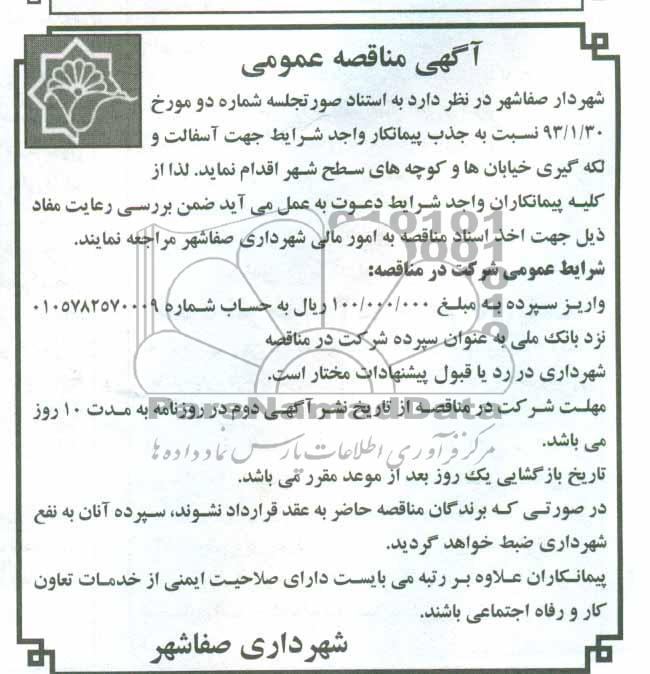 آگهی مناقصه عمومی
شهردار صفاشهر در نظر دارد به استناد صورتجلسه شماره دو مورخ
۹۳/۱/۳۰ نسبت به جذب پیمانکار واجد شرایط جهت آسفالت و
لکه گیری خیابان ها و کوچه های سطح شهر اقدام نماید. لذا از
کلیه پیمانکاران واجد شرایط دعوت به عمل می آید ضمن بررسی رعایت مفاد
ذیل جهت اخذ اسناد مناقصه به امور مالی شهرداری صفاشهر مراجعه نمایند.
شرایط عمومی شرکت در مناقصه:
واریز سپرده به مبلغ ۱۰۰/۰۰۰/۰۰۰ ریال به حساب شماره ۰۱۰۵۷۸۲۵۷۰۰۰۹
نزد بانک ملی به عنوان سپرده شرکت در مناقصه
شهرداری در رد یا قبول پیشنهادات مختار است.
مهلت شرکت در مناقصه از تاریخ نشر آگهی دوم در روزنامه به مدت ۱۰ روز
می باشد.
تاریخ بازگشایی یک روز بعد از موعد مقرر می باشد.
در صورتی که برندگان مناقصه حاضر به عقد قرارداد نشوند، سپرده آنان به نفع
شهرداری ضبط خواهد گردید.
پیمانکاران علاوه بر رتبه می بایست دارای صلاحیت ایمنی از خدمات تعاون
کار و رفاه اجتماعی باشند.
شهرداری صفاشهر
ParsNamadData
مرکز فرآوری اطلاعات پارس نماد داده ها